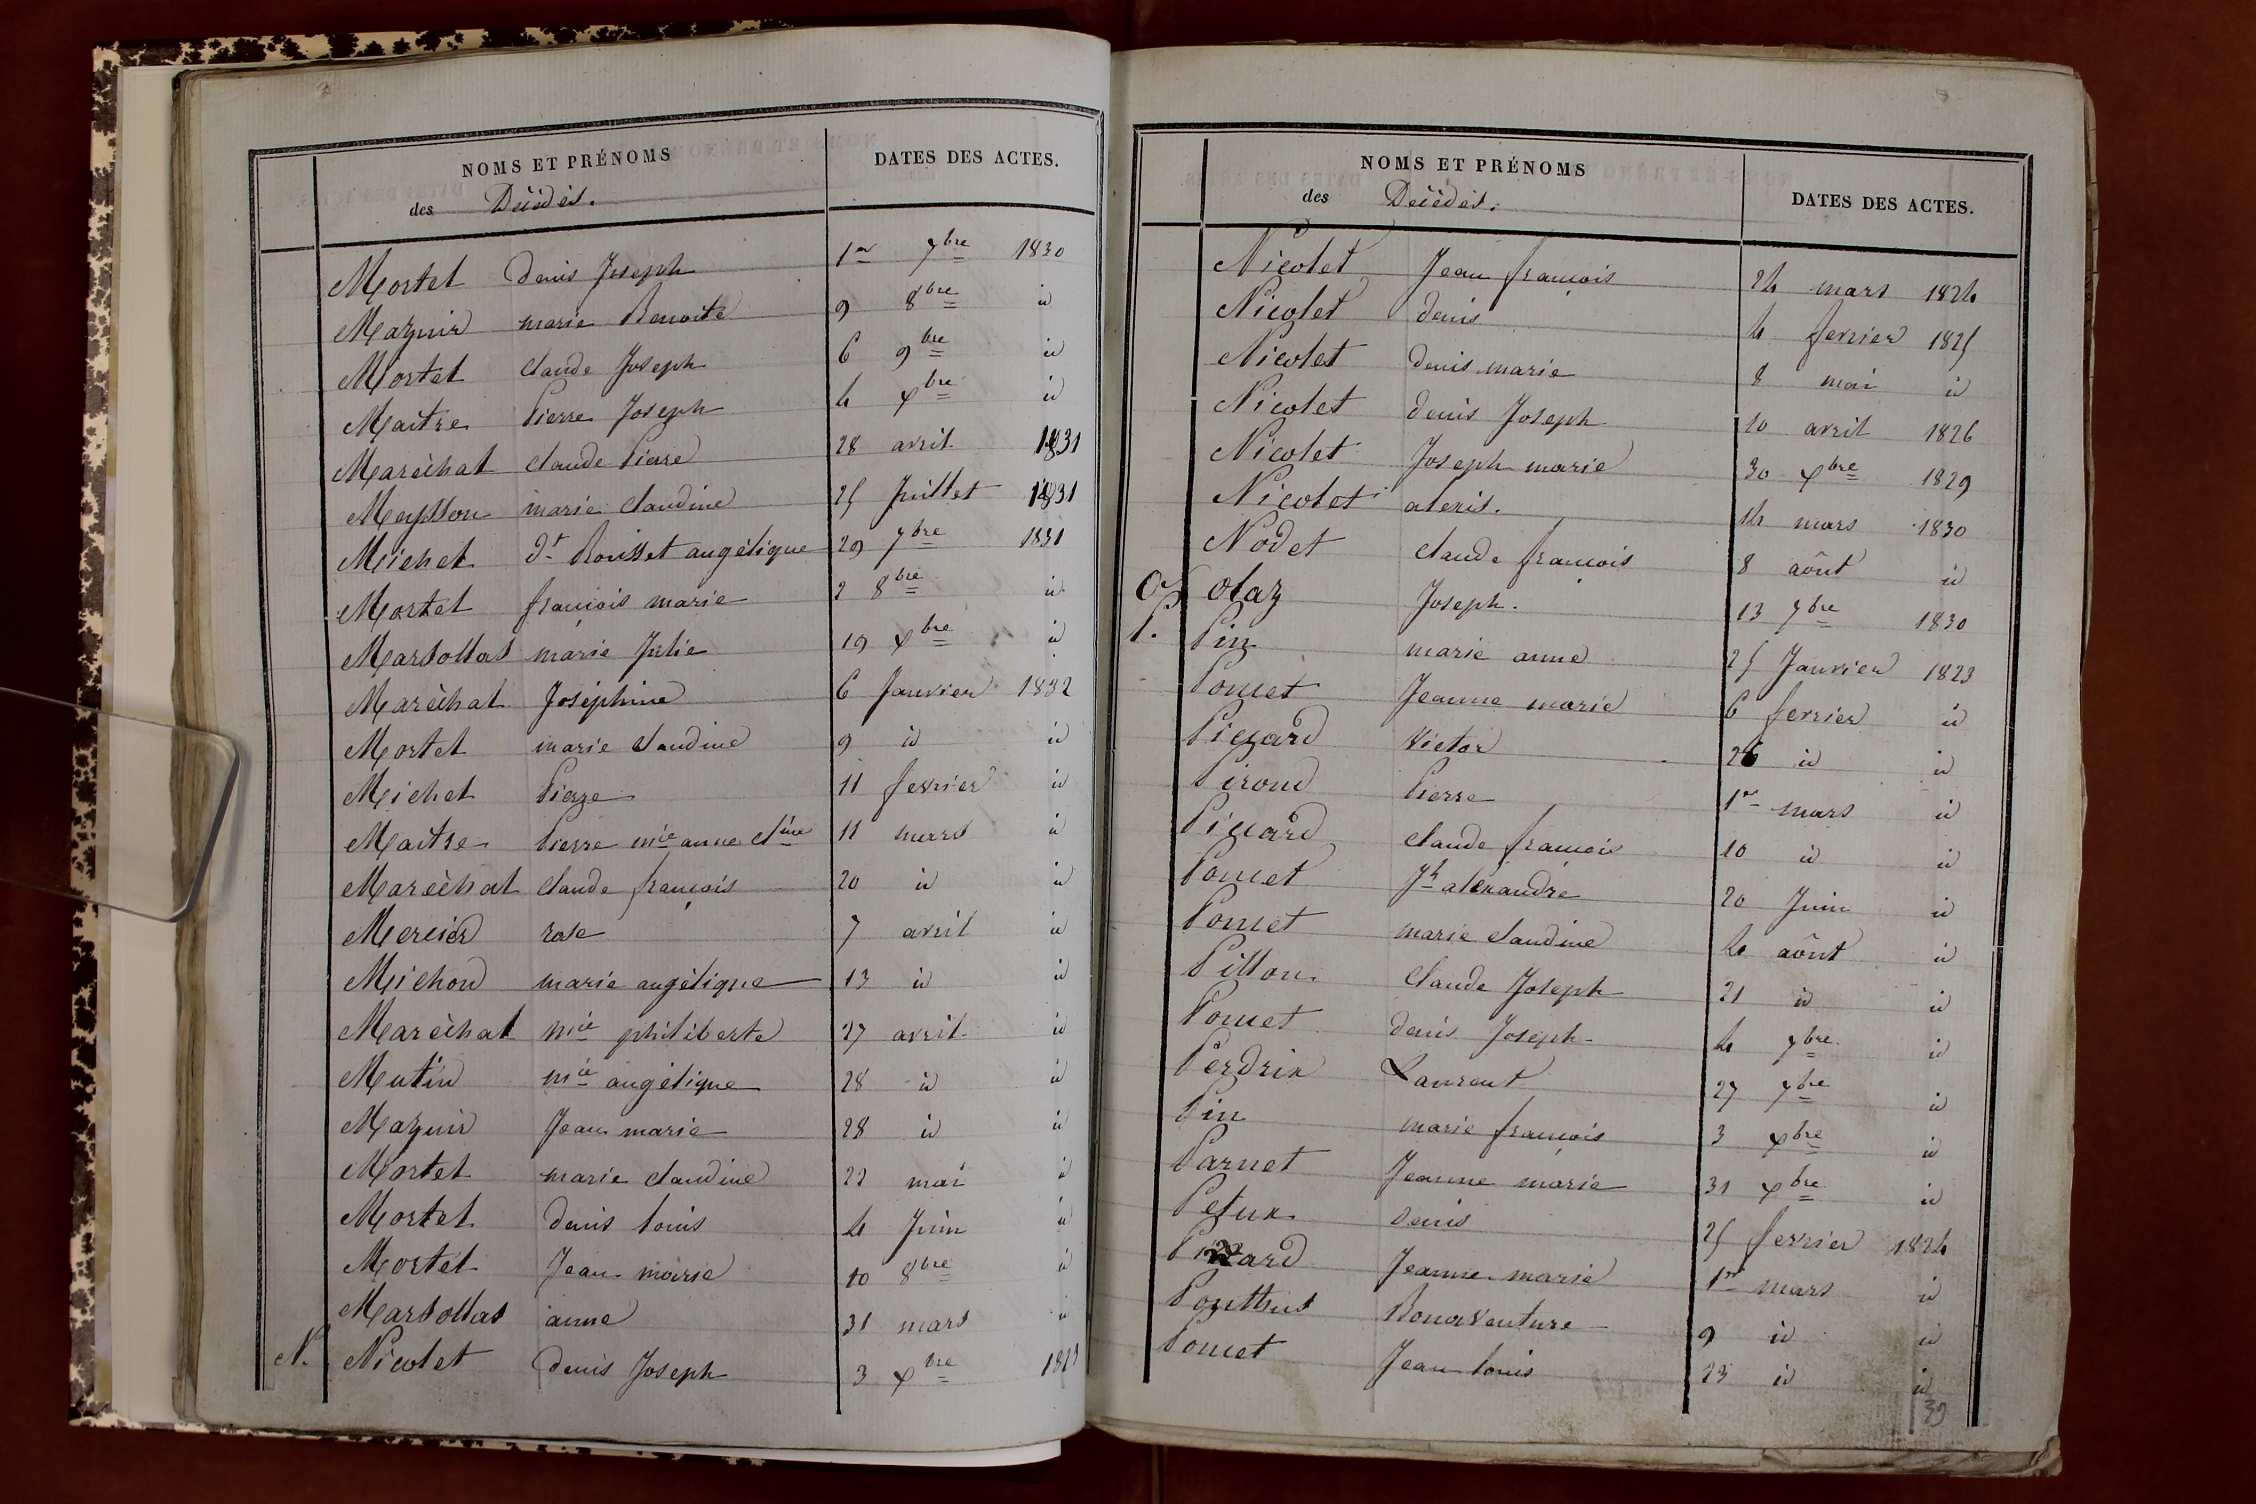 NOMS ET PRÉNOMS DATES DES ACTES.
des Décédés.
Mortel denis Joseph 1er 7bre 1830
Mazuir marie Benoite 9 8bre id
Mortel claude Joseph 6 9bre id
Maitre Pierre Joseph 4 xbre id
Maréchal claude Pierre 28 avril 1831
Meysson marie claudine 25 Juillet 1831
Michel dt Rousset angélique 29 7bre 1831
Mortel francois marie 2 8bre id
Marsollas marie Julie 19 xbre id
Maréchal Joséphine 6 Janvier 1832
Mortel marie claudine 9 id id
Michel Pierre 11 fevrier id
Maitre Pierre mie anne cline 11 mars id
Maréchal claude francois 20 id id
Mercier rose 7 avril id
Michon marie angélique 13 id id
Maréchal mie philiberte 27 avril id
Mutin mie angélique 28 id id
Mazuir Jean marie 28 id id
Mortel marie claudine 22 mai id
Mortel denis louis 4 Juin id
Mortel Jean marie 10 8bre id
Marsollas anne 31 mars id
N. Nicolet denis Joseph 3 xbre 1823
NOMS ET PRÉNOMS DATES DES ACTES.
des Décédés.
Nicolet Jean francois 24 mars 1824
Nicolet denis 4 fevrier 1825
Nicolet denis marie 8 mai id
Nicolet denis Joseph 20 avril 1826
Nicolet Joseph marie 30 xbre 1829
Nicolet alexis. 14 mars 1830
Nodet claude francois 8 août id
O olaz Joseph. 13 7bre 1830
P. Pin marie anne 25 Janvier 1823
Poncet Jeanne marie 6 fevrier id
Picard Victor 26 id id
Piroud Pierre 1er mars id
Picard claude francois 10 id id
Poncet Jh alexandre 20 Juin id
Poncet marie claudine 4 août id
Pillon claude Joseph 21 id id
Poncet denis Joseph 4 7bre id
Perdrix Laurent 27 7bre id
Pin marie francois 3 xbre id
Parnet Jeanne marie 31 xbre id
Petux denis 25 fevrier 1824
Jeanne marie 1er mars id
Ponthus Bonaventure 9 id id
Poncet Jean louis 23 id id
39